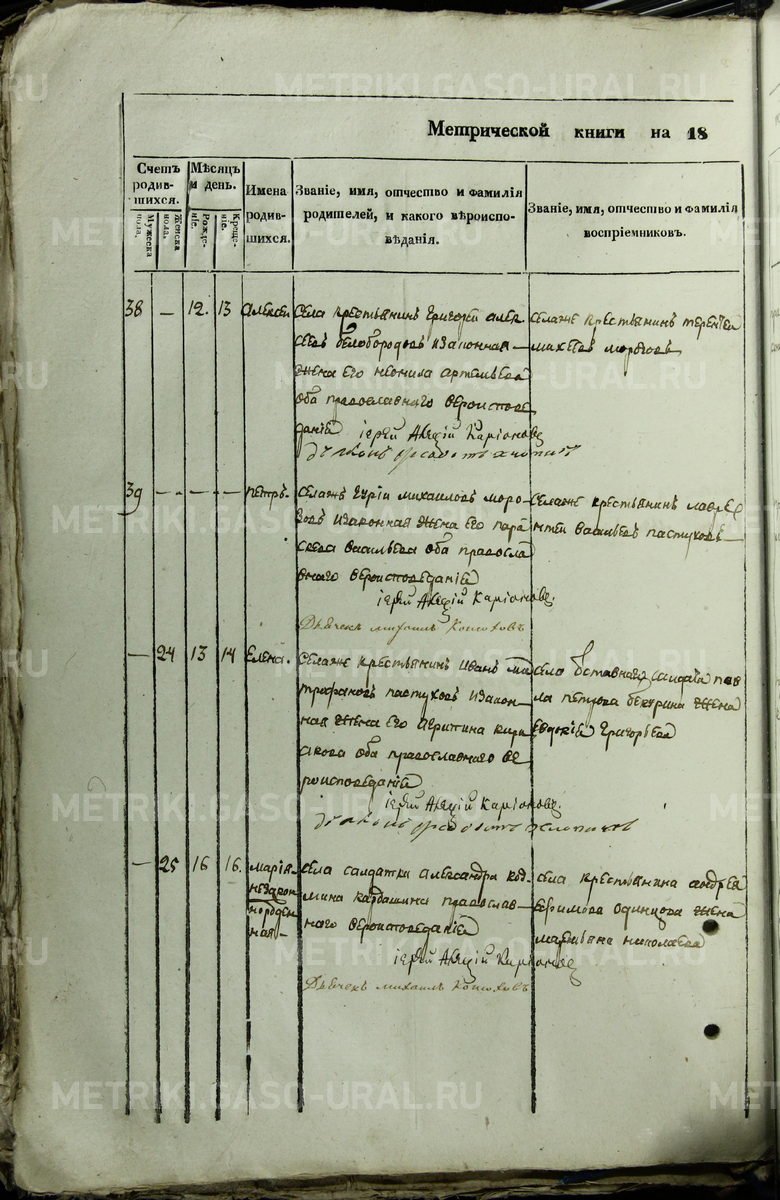 Метрической книги на 18
Счетъ родив-шихся.
Мужеска пола.
Женска пола.
Мѣсяцъ и день.
Рожде-нія.
Креще-нія.
Имена родив-шихся.
Званіе, имя, отчество и фамилія
родителей, и какого вѣроиспо-
вѣданія.
Званіе, имя, отчество и фамилія
воспріемниковъ.
38 — 12. 13 Алексей
села крестьянинъ Григорей Алек
сеевъ Белобородовъ изаконная
жена его Неонила Артемьева
оба православнаго вероиспове
данія
іерей Каріоновъ
селаже крестьянинъ Терентей
Михеевъ Морозовъ
39 — — — — Петръ.
селажъ Гурій Михаиловъ Моро-
зовъ изаконная жена его Пара
скева Васильева оба правосла
внаго вероисповеданія
іерей Каріоновъ.
Дьячекъ Михаилъ Конюховъ
селаже крестьянинъ Лавре
нтей Васильевъ Пастуховъ
— 24 13 14 Елена.
селаже крестьянинъ Иванъ Ми
трофановъ Пастуховъ изакон-
ная жена его Кири
акова оба православнаго ве
роисповеданія
іерей Каріоновъ.
села отставнаго салдата Пав
ла Петрова жена
Евдокія Григорьева
— 25 16 16. Марія
незакон
норожден
ная
села салдатки Александра Коз-
мина православ-
наго вероисповеданія
іерей Каріоновъ
Дьячекъ Михаилъ Конюховъ
села крестьянина Андрея
Ефимова Одинцова жена
Марьяна Николаева
METRIKI.GASO-URAL.RU